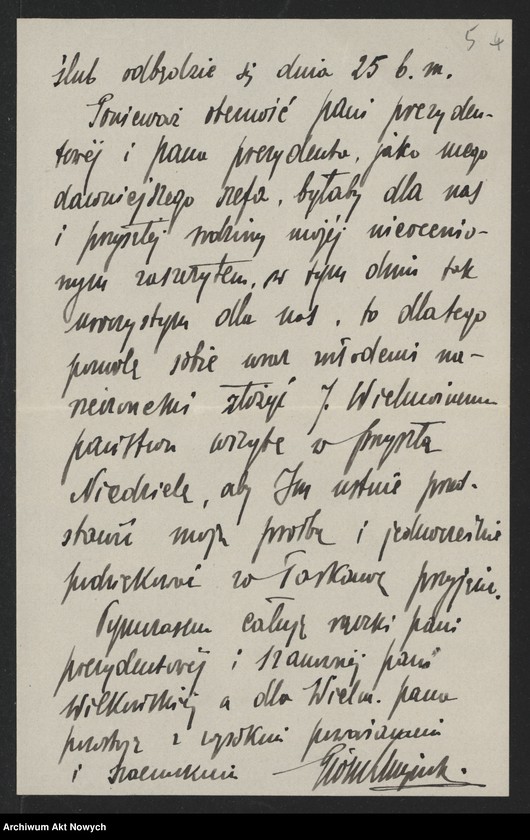 5 4
ślub odbędzie się dnia 25 b.m.
Ponieważ obecność pani prezyden-
towéj i pana prezydenta, jako mego
dawniejszego szefa, byłaby dla nas
i przyszłej rodziny mojéj nieocenio-
nym zaszczytem, w tym dniu tak
uroczystym dla nas, to dlatego
pozwolę sobie wraz młodemi na-
rzeczonemi złożyć J. Wielmożnemu
państwu wizytę w przyszłą
Niedzielę, aby Im ustnie przed-
stawić moją prośbę i jednocześnie
podziękować za łaskawe przyjęcie.
Tymczasem całuję rączki pani
prezydentowéj i szanownéj pani
a dla Wielm. pana
z wysokim poważaniem
i szacunkiem
Archiwum Akt Nowych